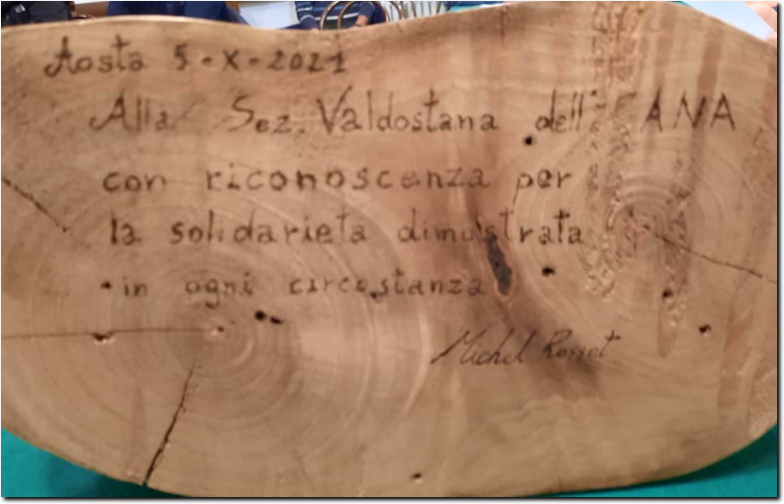 Aosta 5-X-2021
Alla Sez. Valdostana dell' ANA
con riconoscenza per
la solidarieta dimostrata
in ogni circostanza
Michel Rosset